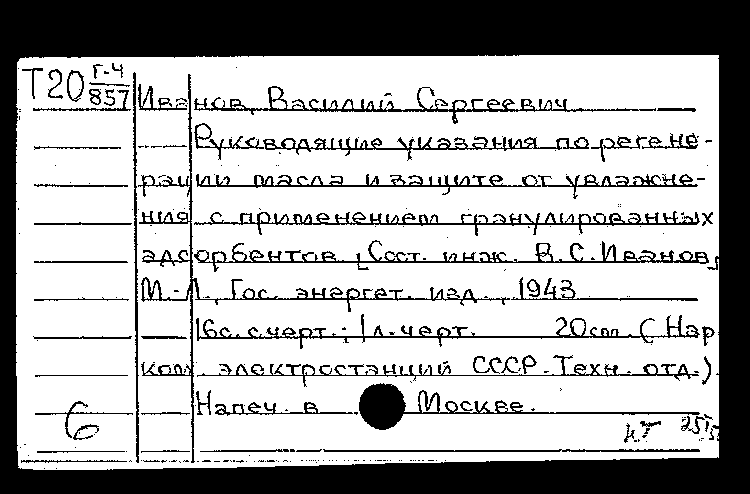 Т20 Г-4
857
Иванов, Василий Сергеевич.
Руководящие указания по регене-
рации масла и защите от увлажне-
ния с применением гранулированных
адсорбентов. [Сост. инж. В. С. Иванов]
М.-Л., Гос. энергет. изд., 1943
16с. с черт.; 1 л. черт. 20см. (Нар
ком. электростанций СССР. Техн. отд.)
Напеч. в Москве.
6